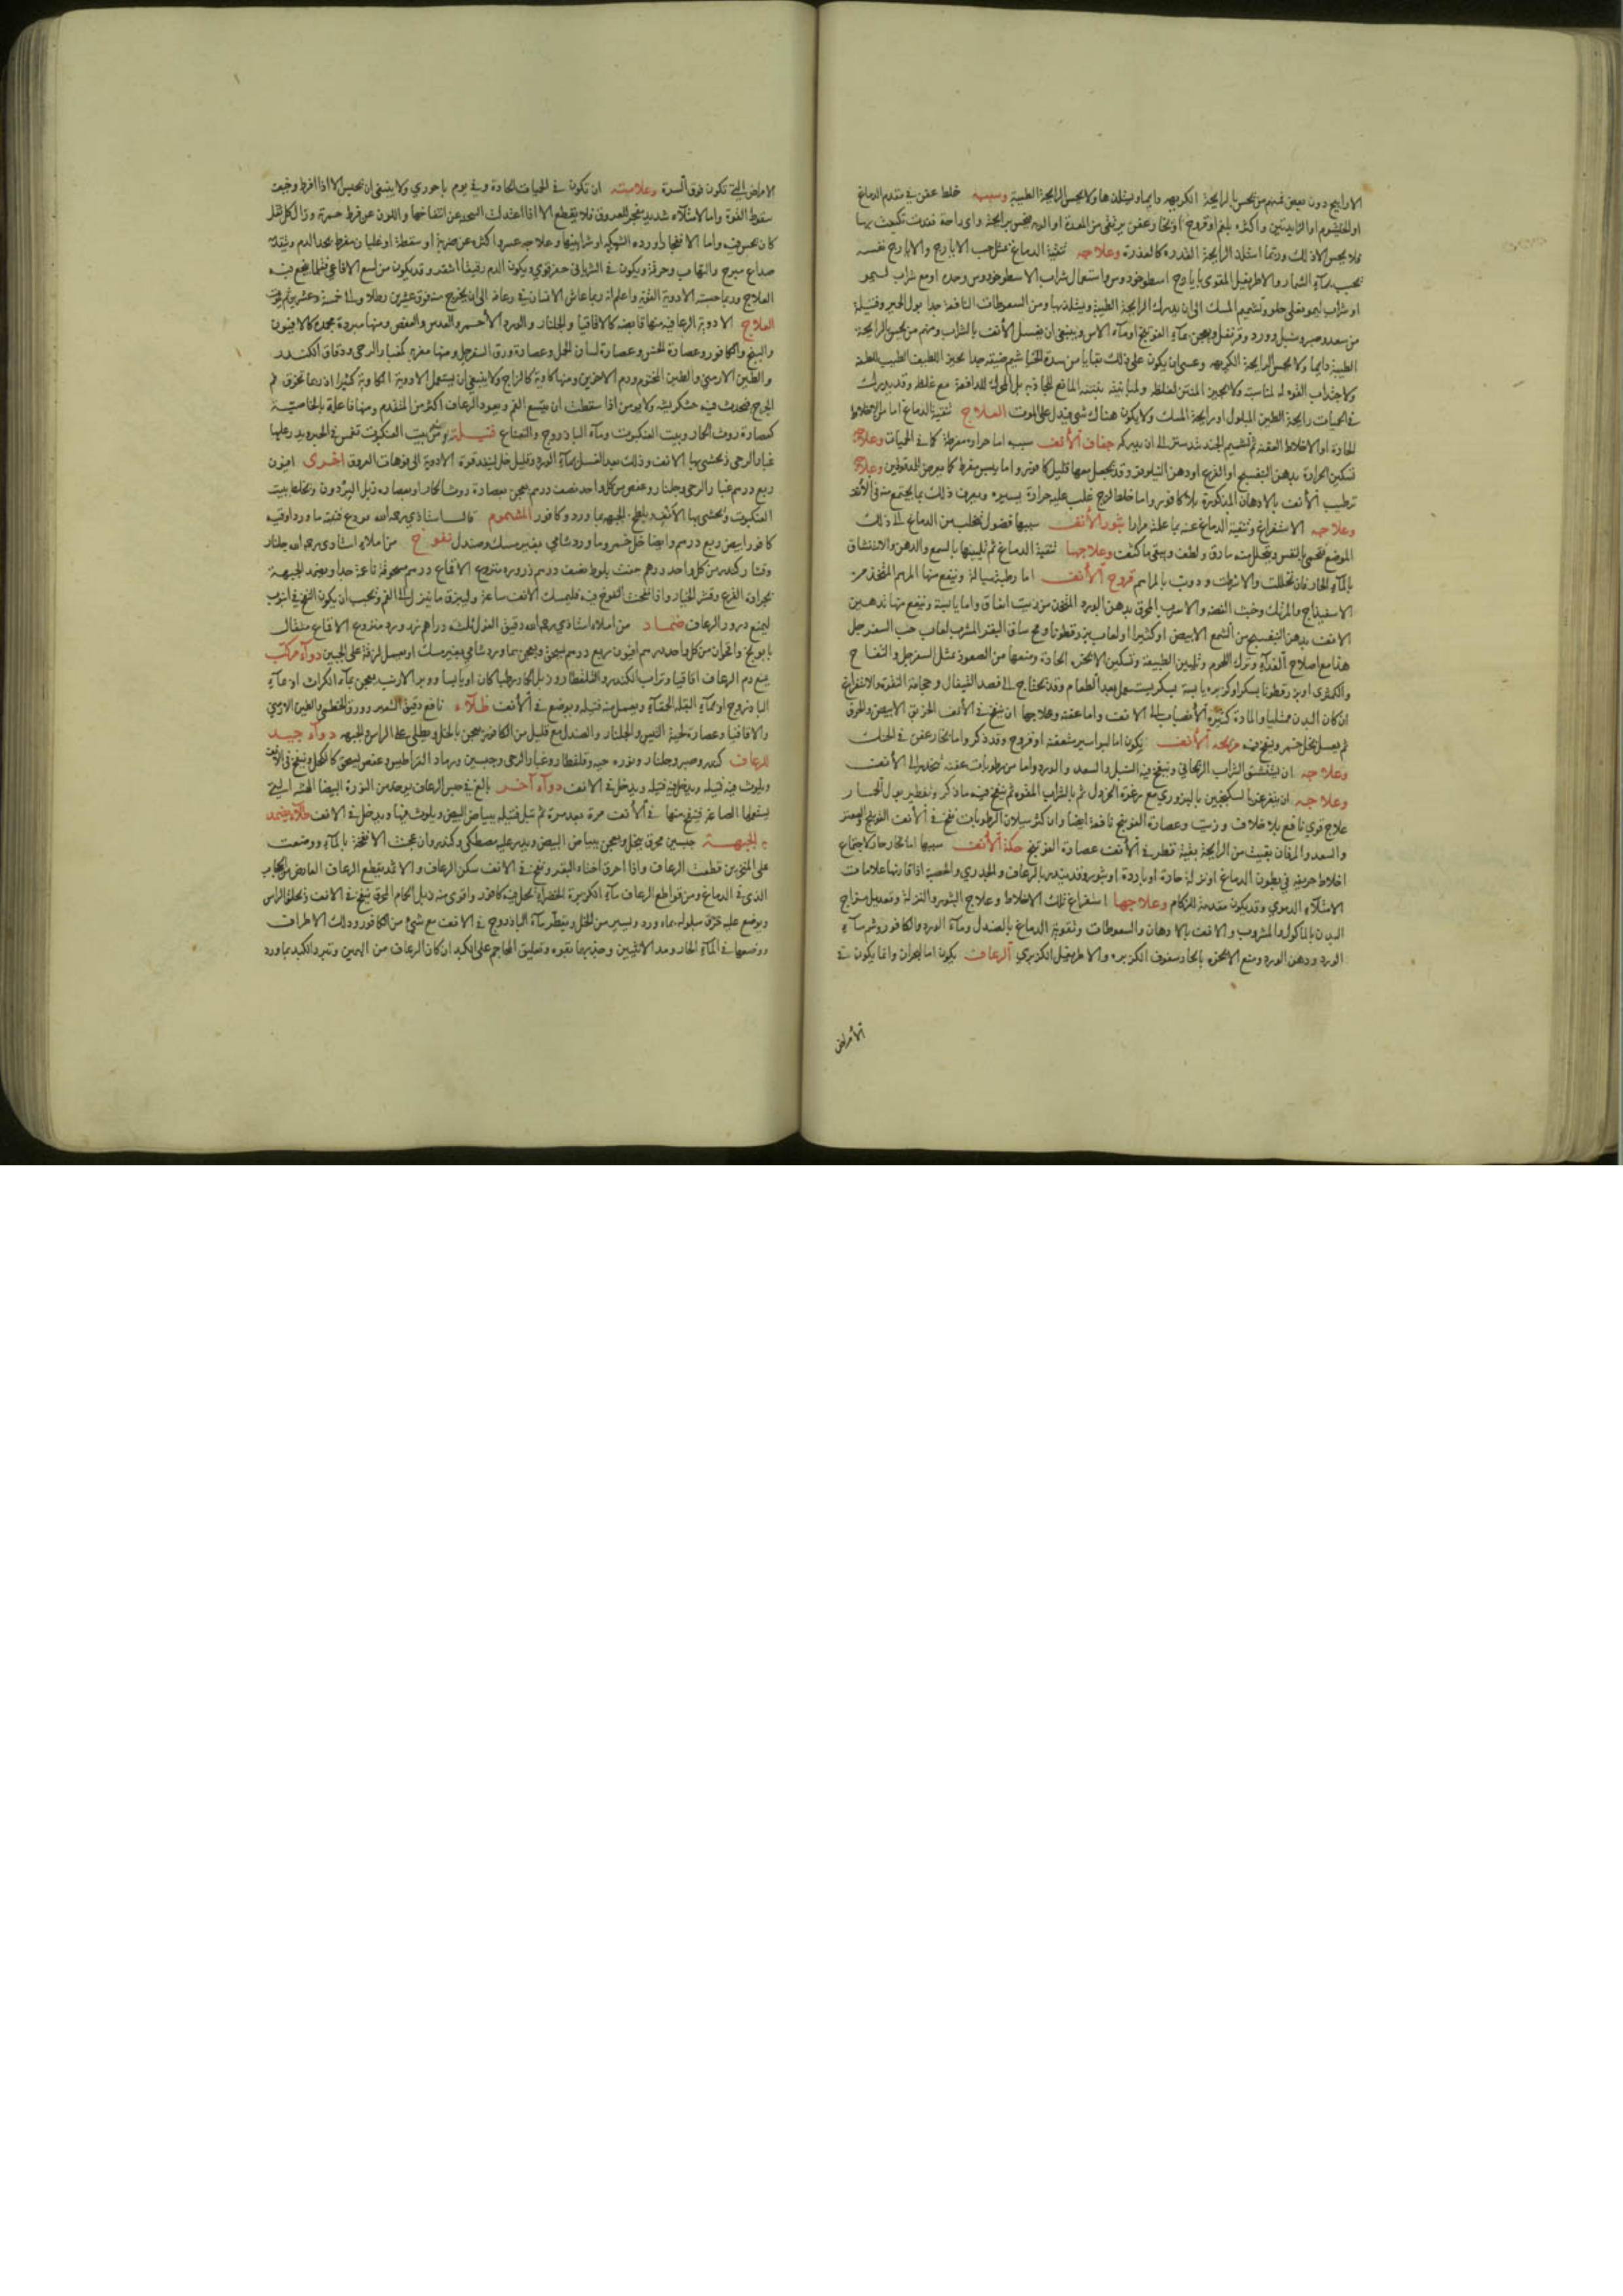 الاراييح دون بعض فمنهم من يحس بالرايحة الكريهه دايما ويستلذها ولا يحس الرايحة الطيبة وسببه خلط عفن في مقدم الدماغ
او الخيشوم او الزايدتين واكثره بلغم او قروح او بخار عفن يرتقي من المعدة او الريه فيحس برايحته واي رايحة
فلا يحس الا ذلك وربما استلذ الرايحة القذرة كالعذرة وعلاجه تنقية الدماغ بمثل حب الايارج والايارج نفسه
او شراب ليمو وتشميم المسك الى ان يدرك الرايحة الطيبة ويستلذ بها ومن السعوطات النافعة جدا بول الحمير وفتيلة
من سعد وصبر وسنبل وورد وقرنفل ويعجن بمآء الفوتنج او مآء الاس وينبغي ان يغسل الأنف بالشراب ومنهم من يحس بالرايحة
الطيبة دايما ولا يحس الرايحة الكريهه وعسى ان يكون على ذلك بقايا من سدة
في الحميات رايحة الطين المبلول او رايحة المسك ولا يكون هناك شي فيدل على الموت العلاج تنقية الدماغ اما من الاخلاط
الحادة او الاخلاط العفنة ثم تشميم الجندبيدستر الى ان يدركه جفاف الأنف سببه اما حرارة مفرطة كما في الحميات وعلاجه
تسكين الحرارة بدهن البنفسج او القرع او دهن النيلوفر وقد يجعل معها قليل كافور واما يبس مفرط كما يعرض للمدقوقين وعلاجه
ترطيب الأنف بالادهان المذكورة بلا كافور واما خلط لزج غلب عليه حرارة يسيره ويعرف ذلك بما يجتمع منه في الأنف
وعلاجه الاستفراغ وتنقية الدماغ عنه بما علمته مرارا بثور الأنف سببها فضول تتحلب من الدماغ الى ذلك
الموضع ويتحلل منه ما رق ولطف ويبقى ما كثف وعلاجها تنقية الدماغ ثم تليينها بالشمع والدهن والاستنشاق
بالمآء الحار فان تحللت والا شرطت ودويت بالمراهم قروح الأنف اما رطبة سيالة وينفع منها المرهم المتخذ من
الاسفيداج والمرتك وخبث الفضه والاسرب المحرق بدهن الورد المتخذ من زيت انفاق واما يابسة وينفع منها تدهين
الانف بدهن البنفسج مع الشمع الابيض او كثيرا او لعاب بزر قطونا ومخ ساق البقر المشرب لعاب حب السفرجل
هذا مع اصلاح الغذآء وترك اللحوم وتليين الطبيعة وتسكين الابخره الحادة ومنعها من الصعود بمثل السفرجل والتفاح
والكمثرى او بزر قطونا بسكر او كزبره يابسة بسكر يستعمل بعد الطعام وقد يحتاج الى فصد القيفال وحجامة النقرة والاستفراغ
ان كان البدن ممتليا والمادة كثيره الأنصباب الى الانف واما عفنه وعلاجها ان ينفخ في الأنف الخربق الابيض والحرف
ثم يغسل بخل خمر وينفخ فيه ريحه الأنف يكون اما لبواسير متعفنه او قروح وقد ذكر واما بخار عفن في الحنك
وعلاجه ان يستنشق الشراب الريحاني وينفخ فيه السنبل والسعد والورد واما من رطوبات عفنه تنحدر الى الأنف
وعلاجه ان يتغرغر بالسكنجبين البزوري مع رغوة الخردل ثم بالشراب المفوه ثم ينفخ فيه ما ذكر وتقطير بول الحمار
علاج قوي نافع بلا خلاف وزيت وعصارة الفوتنج نافعة ايضا وان كثر سيلان الرطوبات نفخ في الأنف الفوتنج والصعتر
والسعد والمرفان بقيت من الرايحة بقية قطر في الأنف عصارة الفوتنج حكة الأنف سببها اما بخار حاد لاجتماع
اخلاط حريفه في بطون الدماغ او نزلة حادة او باردة او بثور وقد ينذر بالرعاف والجدري والحصبة اذا قارنها علامات
الامتلآء الدموي وقد يكون مقدمة للزكام وعلاجها استفراغ تلك الاخلاط وعلاج البثور والنزلة وتعديل مزاج
البدن بالماكول والمشروب والانف بالادهان والسعوطات وتقوية الدماغ بالصندل ومآء الورد والكافور وشم مآء
الورد ودهن الورد ومنع الابخره بالحار سفوف الكزبره والاطريفل الكزبري الرعاف يكون اما لبحران وانما يكون في
الأمراض
الامراض التي تكون فوق السرة وعلامته ان تكون في الحميات الحادة وفي يوم باحوري ولا ينبغي ان يحبس الا اذا افرط وخيف
سقوط القوة واما لامتلآء شديد مفجر للعروق فلا يقطع الا اذا اعتدلت السحنه عن انتفاخها واللون عن فرط حمرته وزال كل ثقل
كان يحس به واما لانفجار اورده الشبكيه او شراينها وعلاجه عسر واكثره عن ضربة او سقطة او غليان مفرط بحد الدم ويتقدمه
صداع مبرح والتهاب وحرقة ويكون في الشرياني حفز قوي ويكون الدم رقيقا اشقر وقد يكون من لسع الافاعي فقلما ينجع فيه
العلاج وربما حبسته الادوية القويه واعلم انه ربما عاش الانسان في رعاف الى ان يخرج منه فوق عشرين رطلا والى خمسة وعشرين ثم يموت
العلاج الادوية الرعافيه منها قابضه كالاقاقيا والجلنار والورد الأحمر والعدس والعفص ومنها مبردة مجمدة كالافيون
والبنج والكافور وعصارة الخس وعصارة لسان الحمل وعصارة ورق السفرجل ومنها مغريه كغبار الرحى ودقاق الكندر
والطين الارمني والطين المختوم ودم الاخوين ومنها كاوية كالزاج ولا ينبغي ان يستعمل الادوية الكاوية كثيرا اذ ربما تحرق فم
الجرح فيحدث فيه خشكريشه ولا يومن اذا سقطت ان يتسع الفم ويعود الرعاف اكثر من المتقدم ومنها فاعلة بالخاصية
كعصارة روث الحمار وبيت العنكبوت ومآء الباذروج والنعناع فتيلة من بيت العنكبوت تغمس في الحبر ويذر عليها
غبار الرحى ويحشى بها الانف وذلك بعد الغسل بمآء الورد وقليل خل لينفذ قوة الادوية الى فوهات العروق اخرى افيون
ربع درهم غبار الرحى وجلنار وعفص من كل واحد نصف درهم يعجن بعصارة روث الحمار او بعصاره زبل البرذون وتخلط ببيت
العنكبوت ويحشى بها الأنف ويلطخ الجبهه بما ورد وكافور المشموم قال استاذي رحمه الله يودع فيه ما ورد اوقيه
كافور ابيض ربع درهم وايضا خل خمر وما ورد شامي بغير مسك وصندل نفوخ من املاء استاذي رحمه الله جلنار
وقشار كندر من كل واحد درهم جفت بلوط نصف درهم ذروره منزوع الاقماع درهم مسحوقة ناعمة جدا ويضمد الجبهة
بجرادة القرع وقشر الخيار واذا نفخت النفوخ فيه فليمسك الانف ساعة وليبزق ما ينزل الى الفم ويجب ان يكون النفخ في انبوب
ليمنع درور الرعاف ضماد من املاء استاذي رحمه الله دقيق الفول ثلثه دراهم ورد منزوع الاقماع مثقال
بابونج واقحوان من كل واحد درهم افيون ربع درهم يسحق ويعجن بما ورد شامي بغير مسك او بعسل لزقة على الجبين دوآء مركب
يمنع دم الرعاف اقاقيا وتراب الكندر والقلقطار وزبل الحمار رطبا كان او يابسا ووبر الارنب يعجن بمآء الكراث او بمآء
الباذروج او بمآء البقله الحمقآء ويعمل منه فتيله ويوضع في الأنف طلآء نافع دقيق الشعير وورق الخطمي والطين الارمني
والاقاقيا وعصارة لحية التيس والجلنار والصندل مع قليل من الكافور يعجن بالخل ويطلى على الراس والجبهه دوآء جيد
للرعاف كندر وصبر وجلنار ونوره حيه وقلقطار وغبار الرحى وجبسين ورماد القراطيس وعفص يسحق كالكحل وينفخ في الأنف
ويلوث فيه فتيله ويدخل في الانف دوآء آخر بالغ في حبس الرعاف يوخذ من النورة البيضا الهشه التي
يستعملها الصاغة فينفخ منها في الأنف مرة بعد مرة ثم تبل فتيله ببياض البيض ويلوث فيها ويدخل في الانف طلآء يضمد
به الجبهة جبسين محرق ينخل ويعجن ببياض البيض ويذر عليه مصطكى وكندر وان عجنت الانفحة بالمآء ووضعت
على المنخرين قطعت الرعاف واذا احرق اخثاء البقر ونفخ في الانف سكن الرعاف والاثمد يقطع الرعاف العارض من الحجاب
الذي في الدماغ ومن قواطع الرعاف مآء الكزبرة الخضراء يحل فيه كافور واقوى منه زبل الحمام المحرق ينفخ في الانف ويحلق الراس
ويوضع عليه خرق مبلوله بماء ورد ويسير من الخل ويقطر مآء الباذروج في الانف مع شئ من الكافور ودلك الاطراف
ووضعها في المآء الحار ومد الانثيين وجذبهما بقوه وتعليق المحاجم على الكبد ان كان الرعاف من اليمين وتبريد الكبد بما ورد